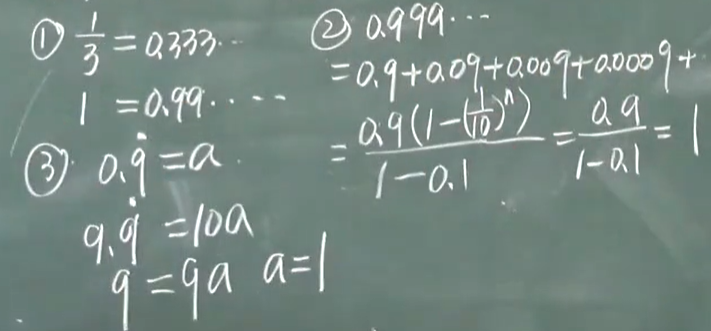 ① 1/3 = 0.333···
1 = 0.99·····
② 0.999···
= 0.9+0.09+0.009+0.0009+
= 0.9(1-(1/10)^n)/(1-0.1) = 0.9/(1-0.1) = 1
③ 0.9̇ = a
9.9̇ = 10a
9 = 9a a=1